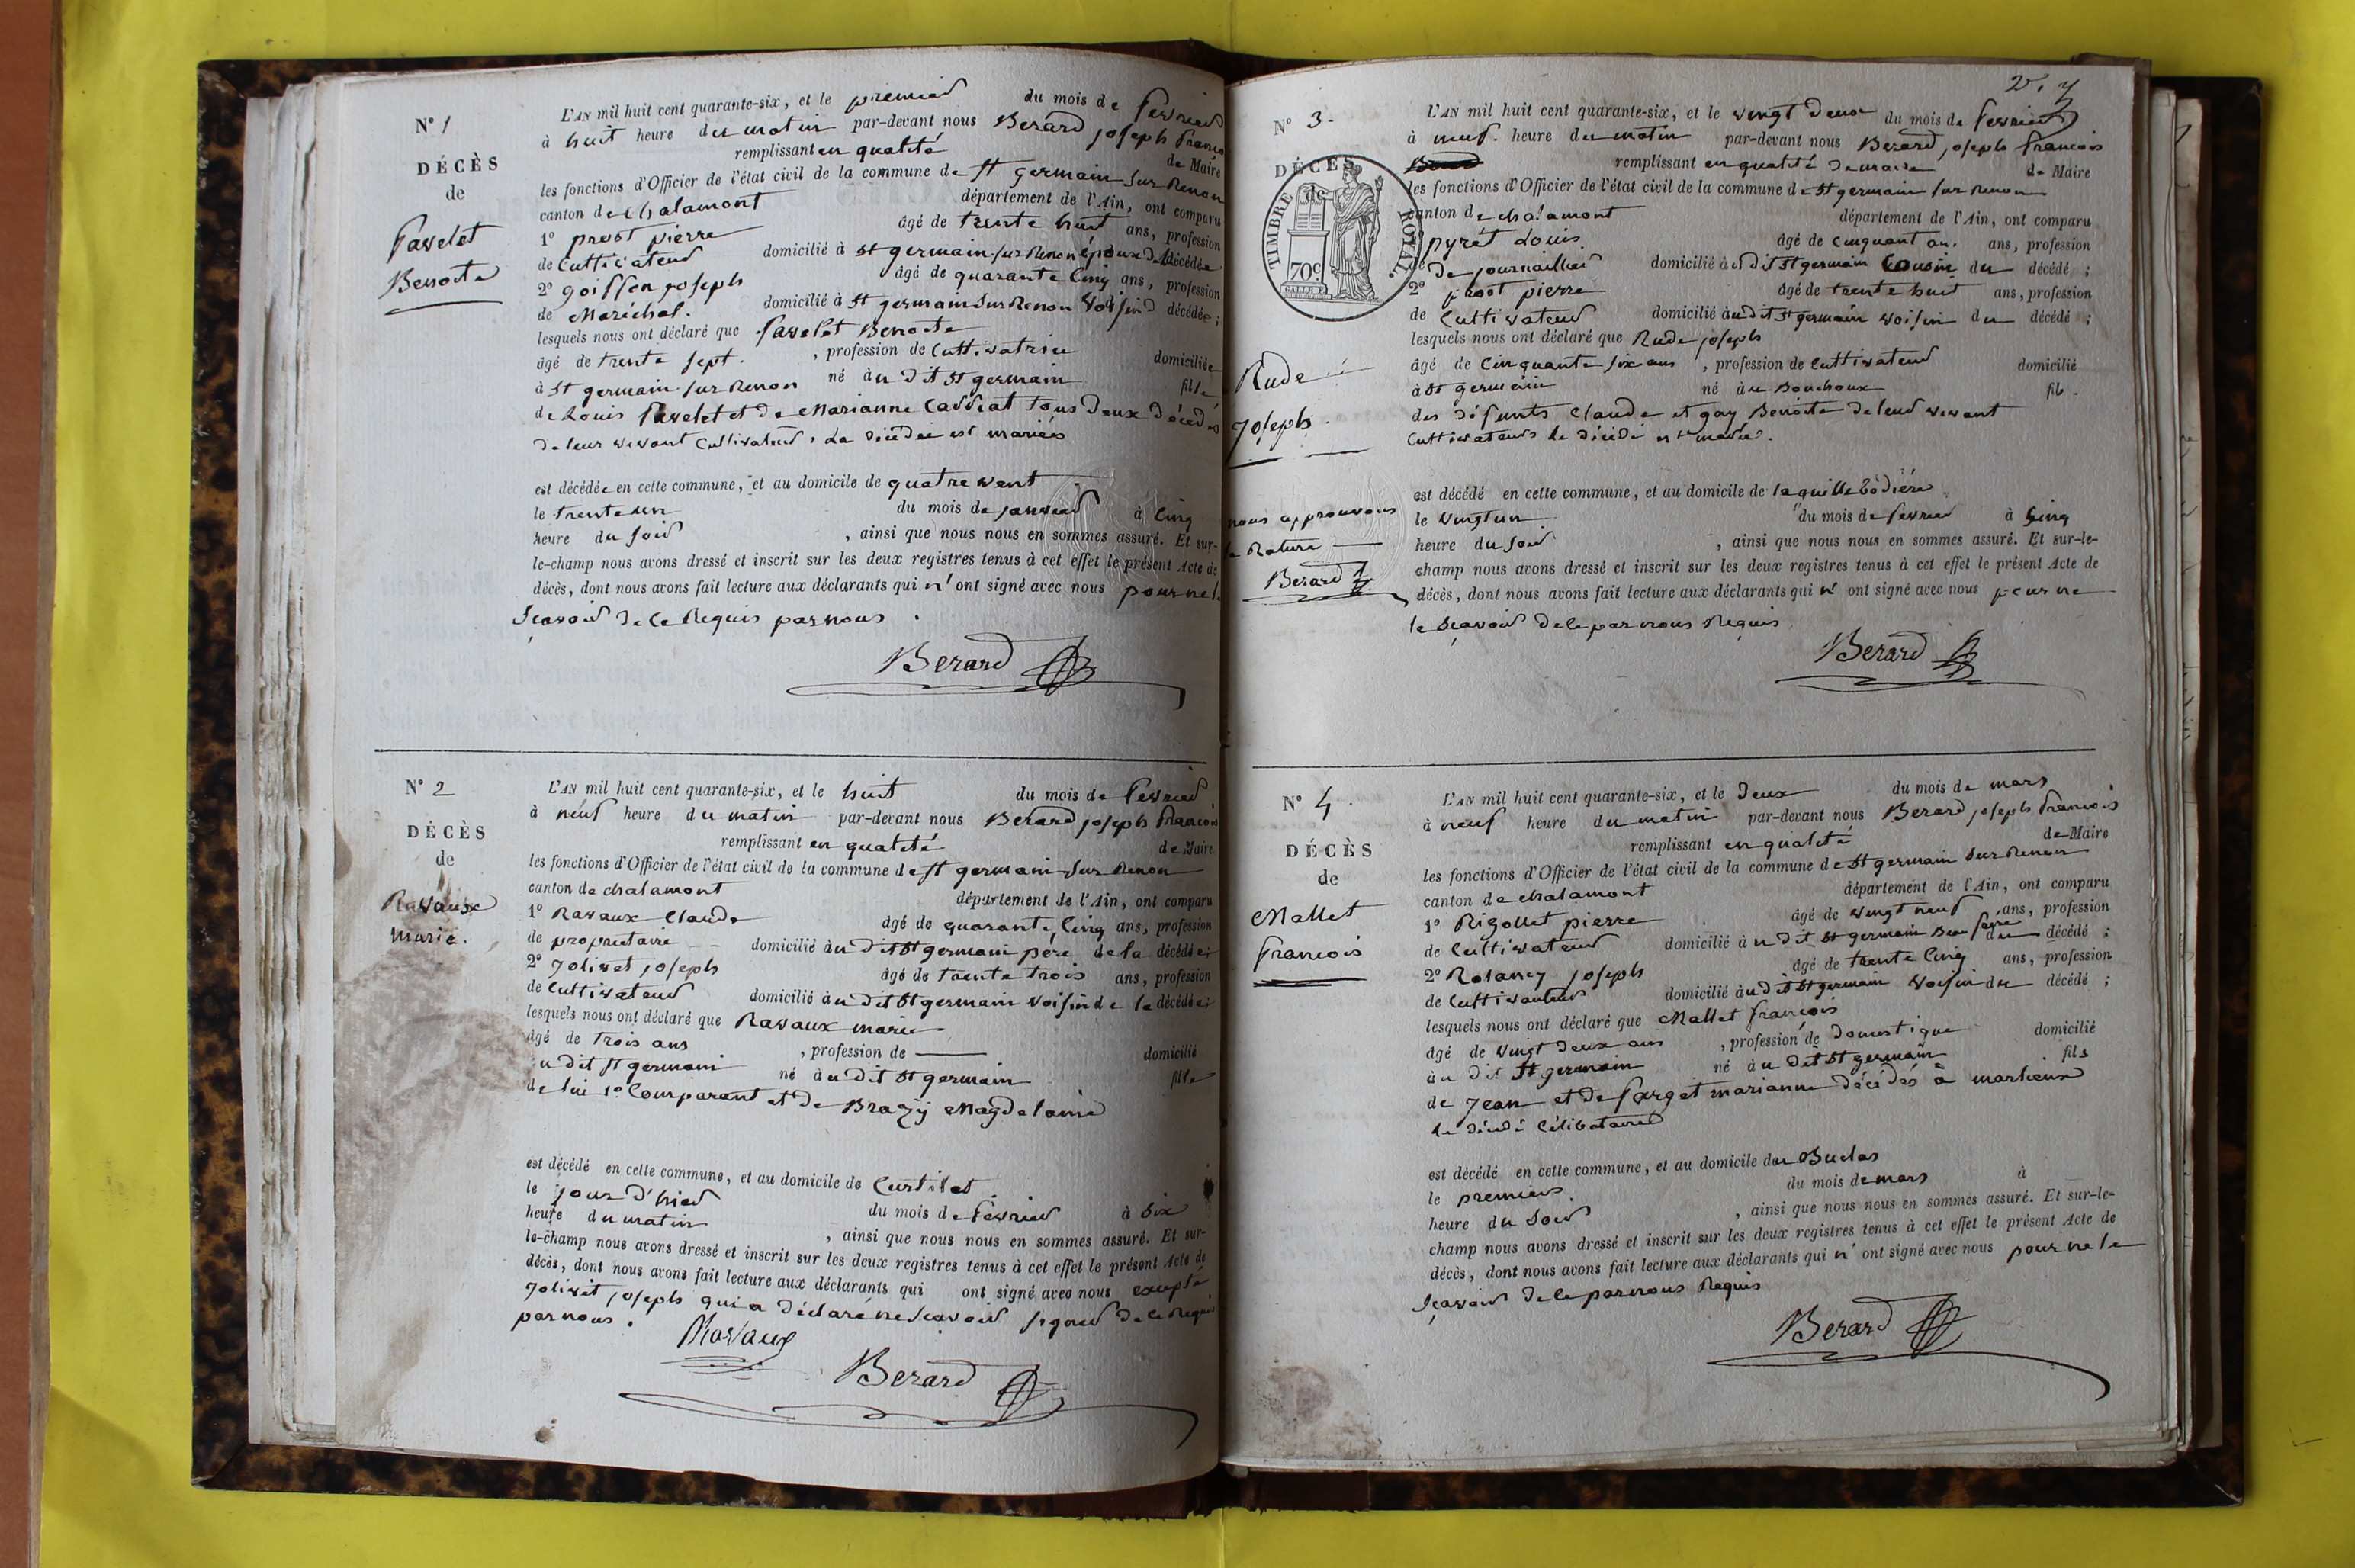 N° 1
DÉCÈS
de
Favelet
Benoite
L'AN mil huit cent quarante-six, et le premier du mois de fevrier
à huit heure du matin par-devant nous Berard joseph françois
remplissant en qualité de Maire
les fonctions d'Officier de l'état civil de la commune de st germain sur Renon
canton de chalamont département de l'Ain, ont comparu
1° prost pierre âgé de trente huit ans, profession
de Cultivateur domicilié à st germain sur Renon époux de la décédée
2° goiffon joseph âgé de quarante cinq ans, profession
de Maréchal. domicilié à st germain sur Renon Voisin décédée ;
lesquels nous ont déclaré que favelet Benoite
âgé de trente sept. , profession de Cultivatrice domiciliée
à St germain sur Renon né àu dit St germain fille
de Louis favelet et de Marianne tous deux décédés
de leur vivant Cultivateur, La décédée est mariée
est décédée en cette commune, et au domicile de quatre vent
le trente un du mois de janvier à Cinq
heure du soir , ainsi que nous nous en sommes assuré. Et sur-
le-champ nous avons dressé et inscrit sur les deux registres tenus à cet effet le présent Acte de
décès, dont nous avons fait lecture aux déclarants qui n' ont signé avec nous pour ne l.
scavoir de ce Requis par nous .
Berard
N° 2
DÉCÈS
de
Ravaux
marie.
L'AN mil huit cent quarante-six, et le huit du mois de fevrier
à neuf heure du matin par-devant nous Berard joseph françois
remplissant en qualité de Maire
les fonctions d'Officier de l'état civil de la commune de st germain sur Renon
canton de chalamont département de l'Ain, ont comparu
1° Ravaux Claude âgé de quarante Cinq ans, profession
de proprietaire domicilié àu dit St germain père de la décédée ;
2° Jolivet joseph âgé de trente trois ans, profession
de Cultivateur domicilié àu dit St germain voisin de la décédée ;
lesquels nous ont déclaré que Ravaux marie
âgé de trois ans , profession de — domicilié
àu dit st germain né àu dit St germain fille
de lui 1° Comparant et de Brazy Magdelaine
est décédé en cette commune, et au domicile de Curtilet
le jour d'hier du mois de fevrier à Six
heure du matin , ainsi que nous nous en sommes assuré. Et sur-
le-champ nous avons dressé et inscrit sur les deux registres tenus à cet effet le présent Acte de
décès, dont nous avons fait lecture aux déclarants qui ont signé avec nous excepté
Jolivet joseph qui a déclaré ne scavoir signer de ce Requis
par nous .
Ravaux
Berard
2e. f
N° 3.
DÉCÈS
de
TIMBRE ROYAL.
70c
Rude
Joseph
nous approuvons
la Rature —
Berard
L'AN mil huit cent quarante-six, et le vingt deux du mois de fevrier
à neuf. heure du matin par-devant nous Berard joseph françois
remplissant en qualité de maire de Maire
les fonctions d'Officier de l'état civil de la commune de St germain sur Renon
canton de chalamont département de l'Ain, ont comparu
pyret Louis âgé de cinquant an. ans, profession
de journaillier domicilié à u dit St germain Cousin du décédé ;
2° prost pierre âgé de trente huit ans, profession
de Cultivateur domicilié àu dit St germain voisin du décédé ;
lesquels nous ont déclaré que Rude joseph
âgé de Cinquante six ans , profession de Cultivateur domicilié
à St germain né àu Bouchoux fils.
des défunts Claude et gay Benoite de leur vivant
Cultivateurs le décédé est marié.
est décédé en cette commune, et au domicile de
le vingt un du mois de fevrier à Cinq
heure du soir , ainsi que nous nous en sommes assuré. Et sur-le-
champ nous avons dressé et inscrit sur les deux registres tenus à cet effet le présent Acte de
décès, dont nous avons fait lecture aux déclarants qui n' ont signé avec nous pour ne
le Scavoir de le par nous Requis
Berard
N° 4.
DÉCÈS
de
Mallet
francois
L'AN mil huit cent quarante-six, et le Deux du mois de mars
à neuf heure du matin par-devant nous Berard joseph francois
remplissant en qualité de Maire
les fonctions d'Officier de l'état civil de la commune de St germain sur Renon
canton de chalamont département de l'Ain, ont comparu
1° Rigollet pierre âgé de vingt neuf ans, profession
de Cultivateur domicilié à u dit St germain Beau frere du décédé ;
2° joseph âgé de trente Cinq ans, profession
de Cultivateur domicilié àu dit St germain Voisin du décédé ;
lesquels nous ont déclaré que Mallet françois
âgé de vingt deux ans , profession de domestique domicilié
àu dit St germain né àu dit St germain fils
de Jean et de farget marianne décédés à marlieux
le décédé Célibataire
est décédé en cette commune, et au domicile du Buclas
le premier. du mois de mars à
heure du Soir , ainsi que nous nous en sommes assuré. Et sur-le-
champ nous avons dressé et inscrit sur les deux registres tenus à cet effet le présent Acte de
décès, dont nous avons fait lecture aux déclarants qui n' ont signé avec nous pour ne le
Scavoir de le par nous Requis
Berard